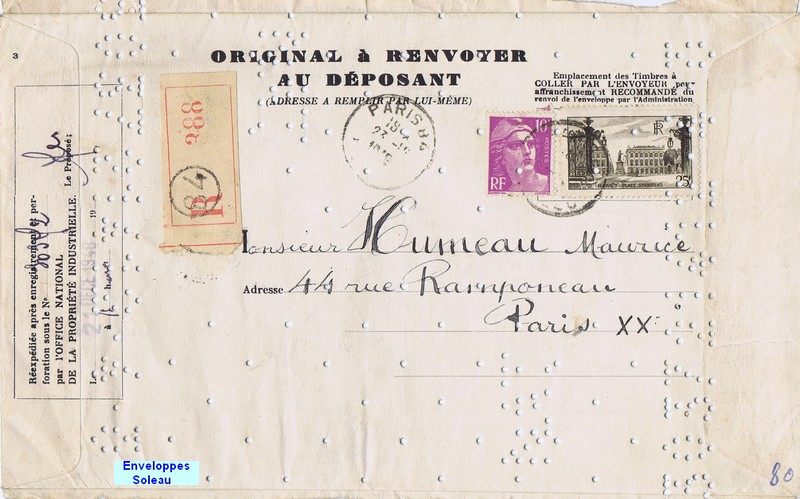 3
ORIGINAL à RENVOYER
AU DÉPOSANT
(ADRESSE A REMPLIR PAR LUI-MÊME)
Emplacement des Timbres à
COLLER PAR L'ENVOYEUR pour
affranchissement RECOMMANDÉ du
renvoi de l'enveloppe par l'Administration
R
84
288
PARIS 84
18
10F
POSTES
RF
RF
NANCY - PLACE STANISLAS
25F
Monsieur Humeau Maurice
Adresse 44 rue Ramponeau
Paris XX
Réexpédiée après enregistrement et per-
foration sous le No
par l'OFFICE NATIONAL
DE LA PROPRIÉTÉ INDUSTRIELLE.
Le 19
à
Le Préposé;
Enveloppes
Soleau
80